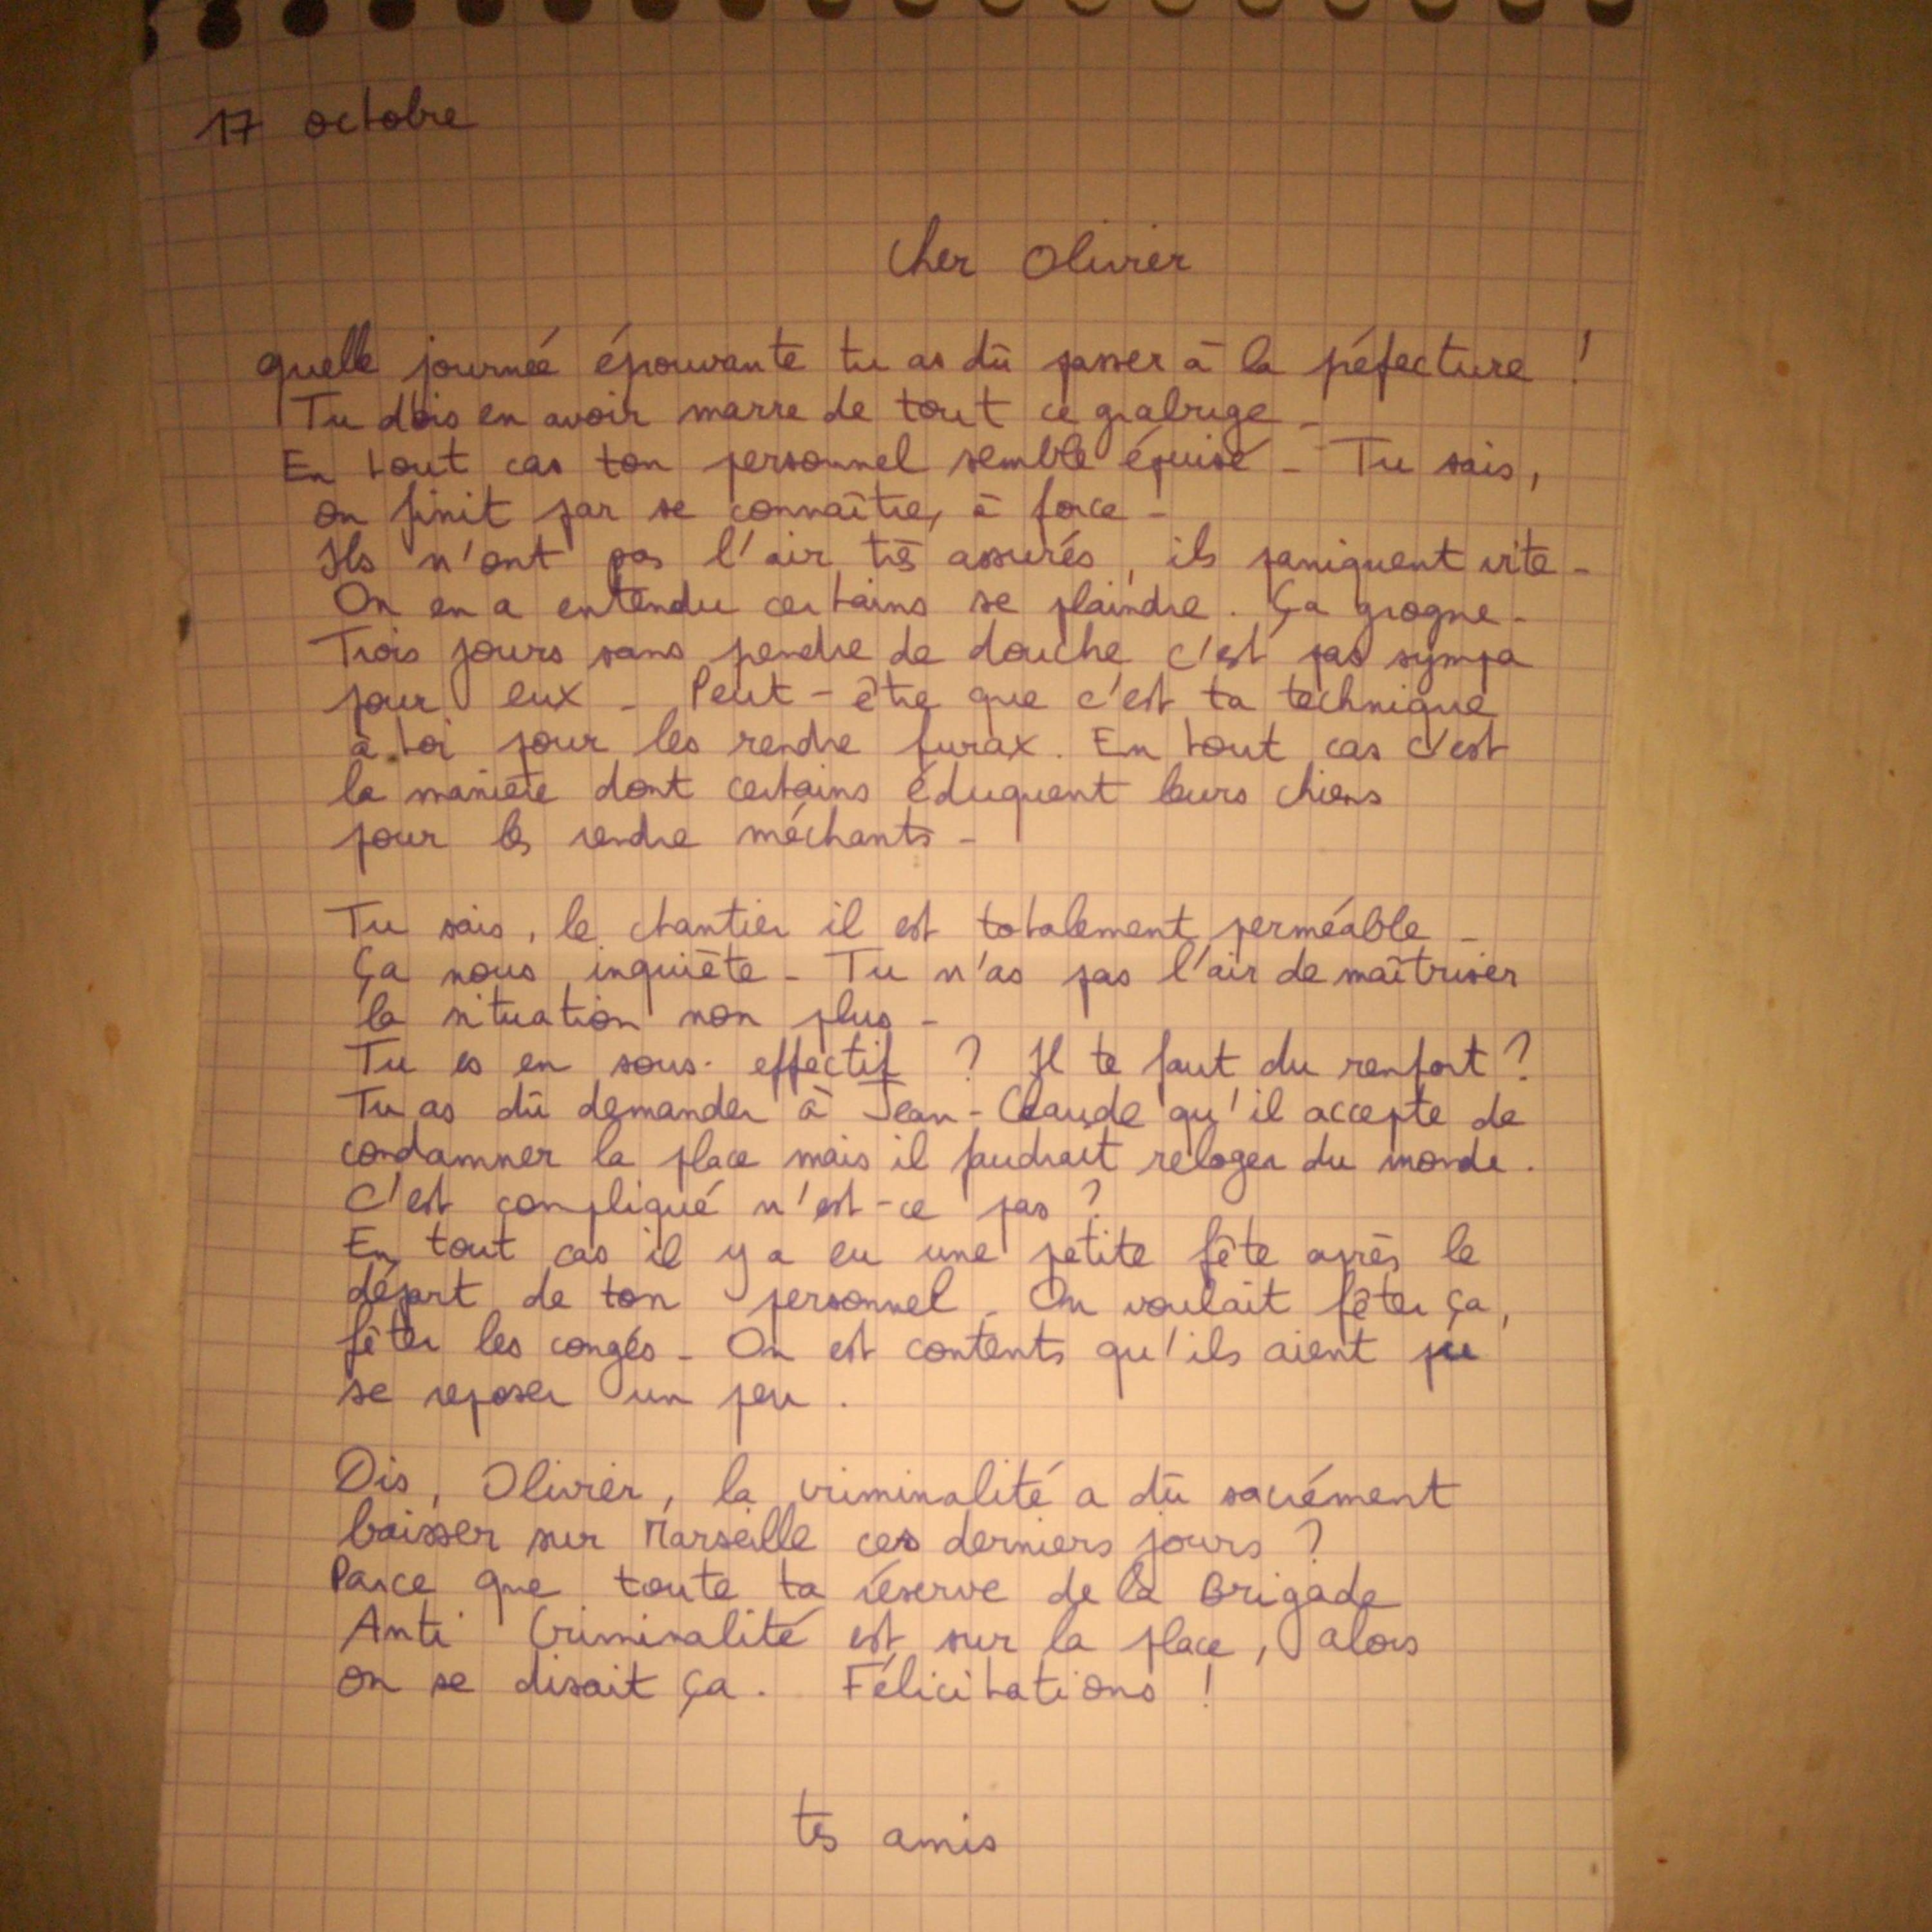 17 octobre
Cher Olivier
quelle journée épouvante tu as dû passer à la péfecture !
Tu dois en avoir marre de tout ce grabuge -
En tout cas ton personnel semble épuisé - Tu sais,
on finit par se connaître, à force -
Ils n'ont pas l'air très assurés, ils paniquent vite -
On en a entendu certains se plaindre. Ça grogne -
Trois jours sans prendre de douche c'est pas sympa
pour eux - Peut-être que c'est ta technique
à toi pour les rendre furax. En tout cas c'est
la manière dont certains éduquent leurs chiens
pour les rendre méchants -
Tu sais, le chantier il est totalement perméable -
Ça nous inquiète - Tu n'as pas l'air de maîtriser
la situation non plus -
Tu es en sous-effectif ? Il te faut du renfort ?
Tu as dû demander à Jean-Claude qu'il accepte de
condamner la place mais il faudrait reloger du monde.
C'est compliqué n'est-ce pas ?
En tout cas il y a eu une petite fête après le
départ de ton personnel. On voulait fêter ça,
fêter les congés - On est contents qu'ils aient pu
se reposer un peu.
Dis, Olivier, la criminalité a dû sacrément
baisser sur Marseille ces derniers jours ?
Parce que toute ta réserve de la Brigade
Anti Criminalité est sur la place, alors
on se disait ça. Félicitations !
tes amis